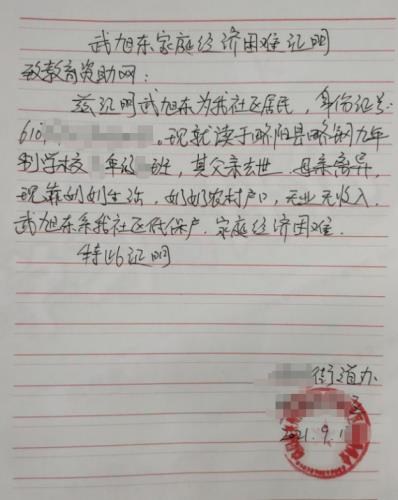 武旭东家庭经济困难证明
致教育资助网:
兹证明武旭东为我社区居民,身份证号:
610,。现就读于略阳县略钢九年
制学校年级班,其父亲去世.母亲离异,
现靠奶奶生活,奶奶农村户口,无业无收入.
武旭东系我社区低保户.家庭经济困难.
特此证明
街道办
2021.9.1